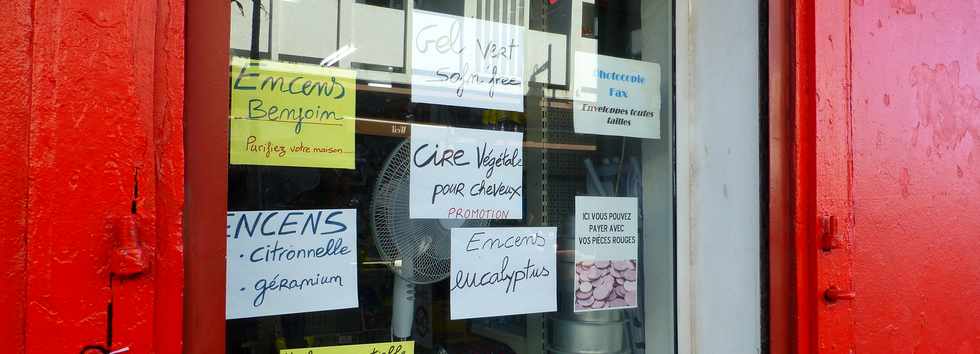 Gel Vert
Sofn'free
Photocopie
Fax
Enveloppes toutes
tailles
Encens
Benjoin
Purifiez votre maison
Cire Végétale
pour cheveux
PROMOTION
ENCENS
. citronnelle
. géramium
Encens
eucalyptus
ICI VOUS POUVEZ
PAYER AVEC
VOS PIÈCES ROUGES